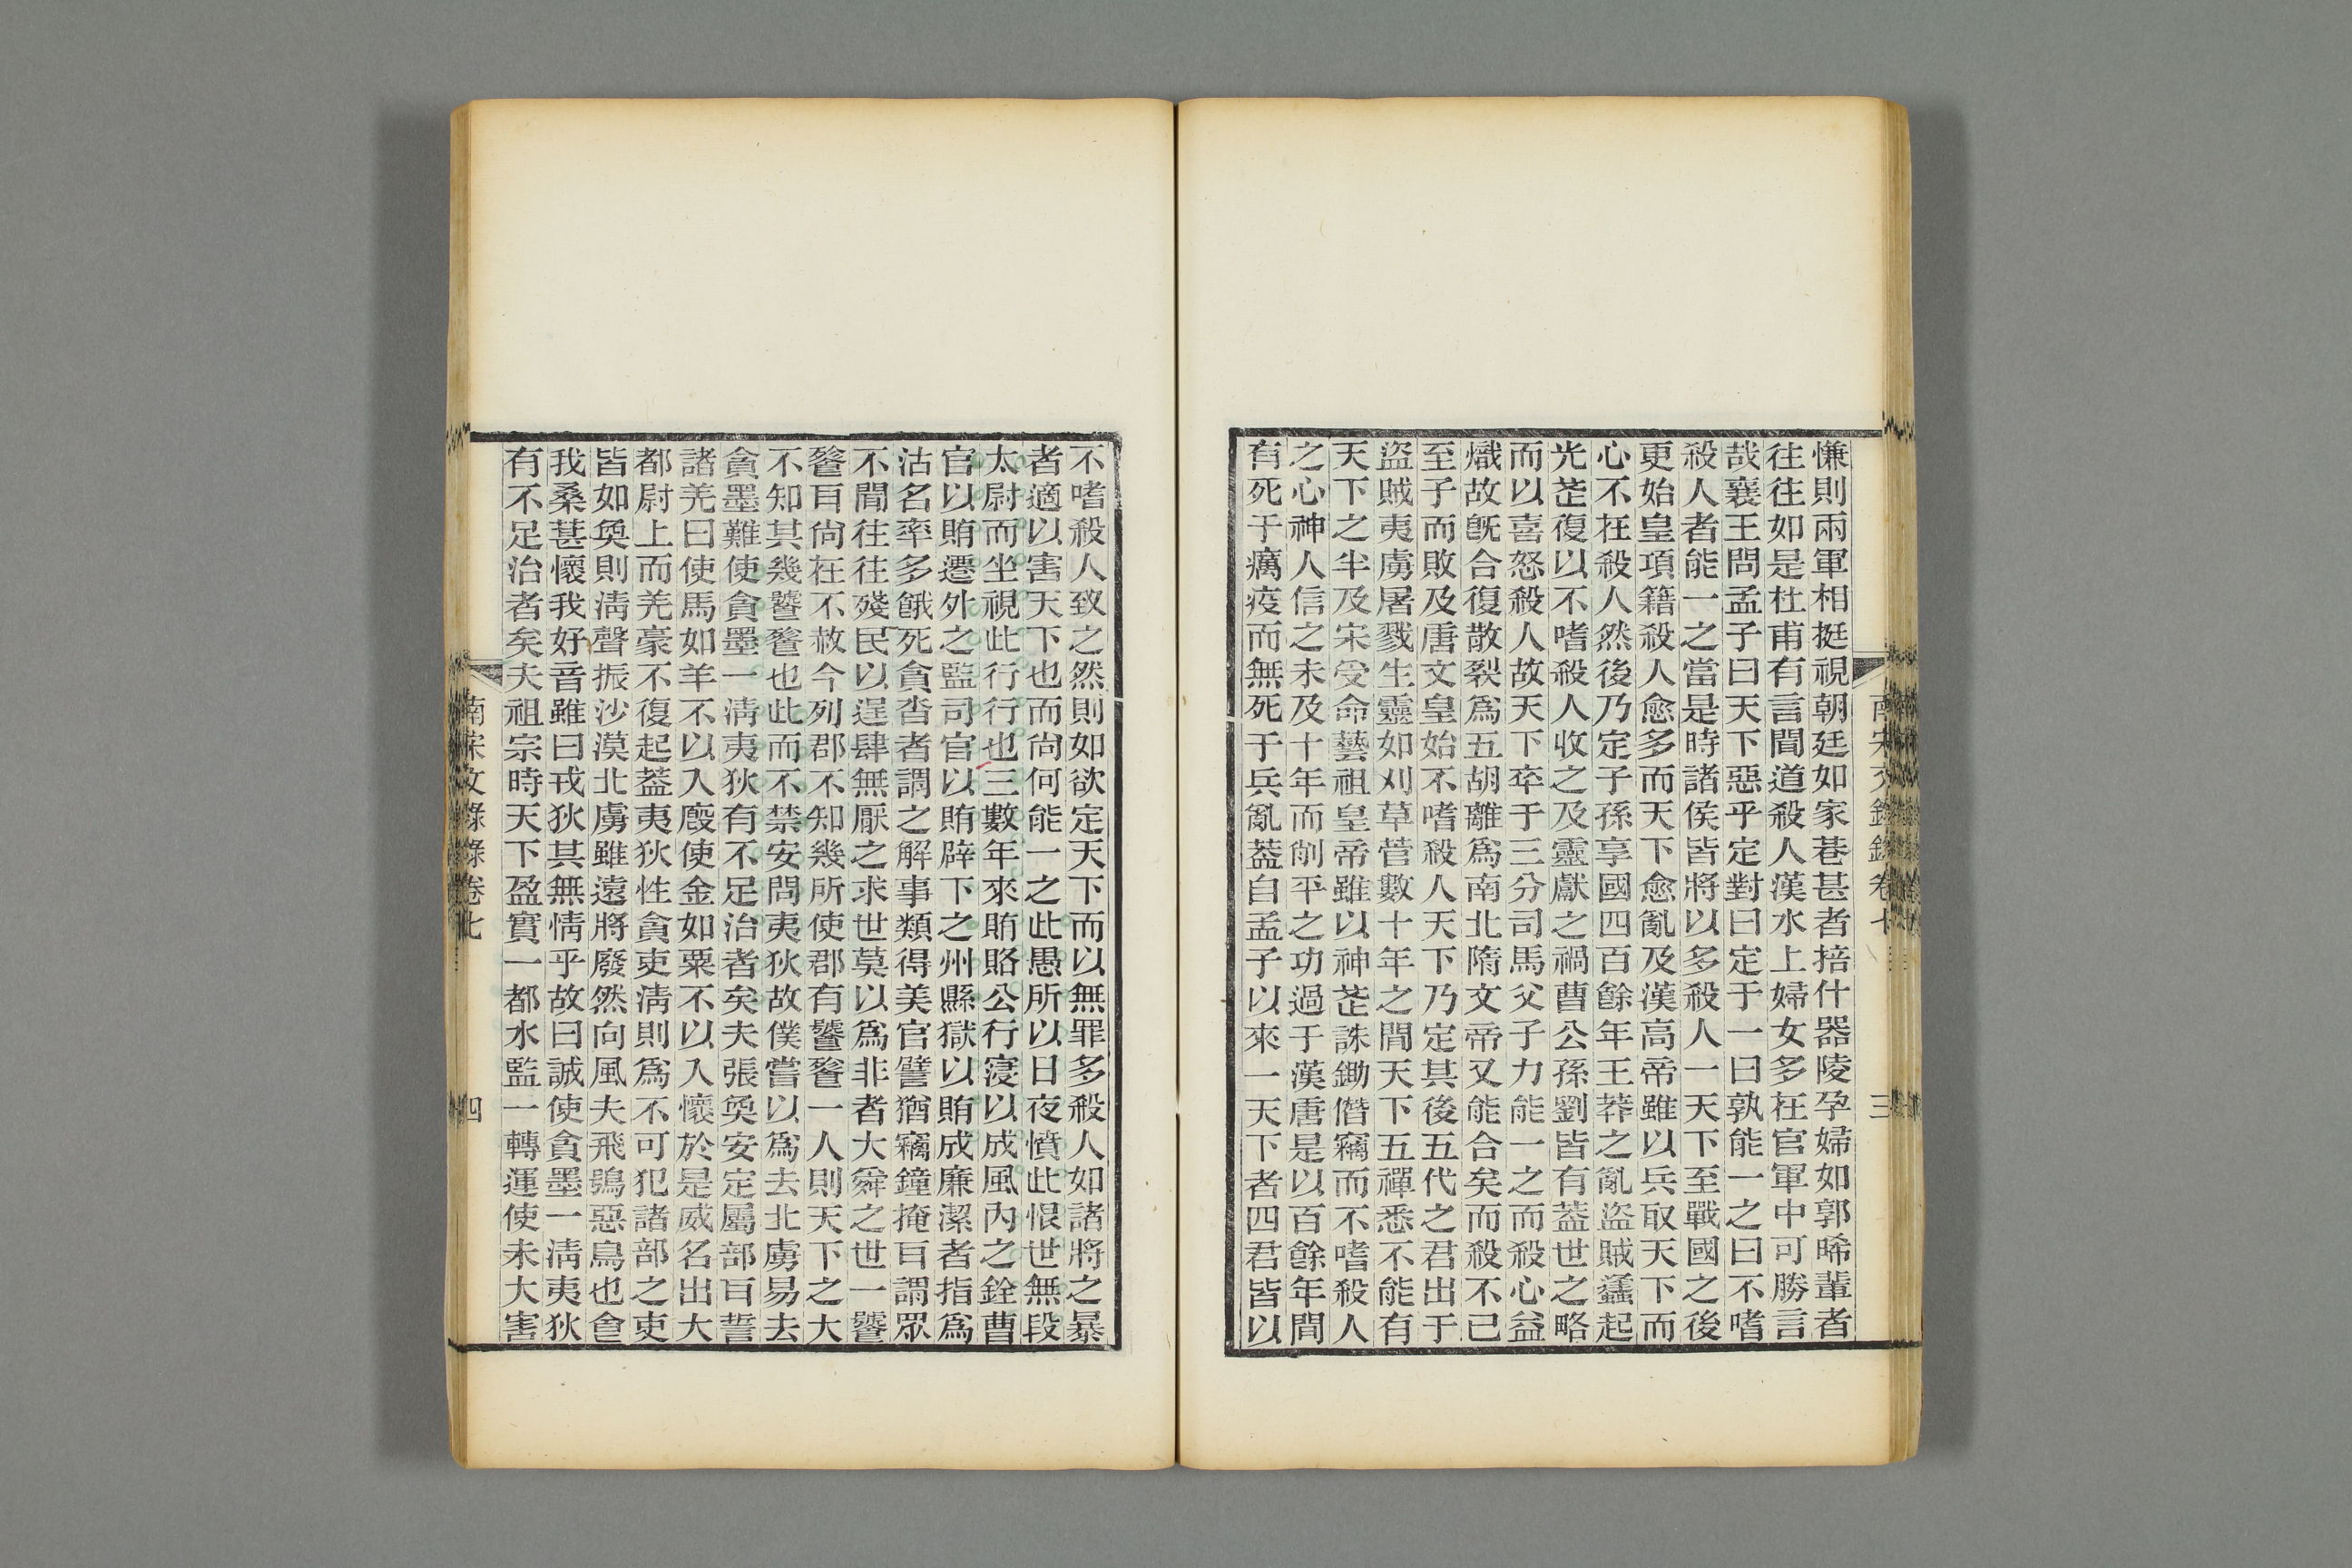 慊則兩軍相挺視朝廷如家巷甚者掊什器陵孕婦如郭晞輩者
往往如是杜甫有言聞道殺人漢水上婦女多在官軍中可勝言
哉襄王問孟子曰天下惡乎定對曰定于一曰孰能一之曰不嗜
殺人者能一之當是時諸侯皆將以多殺人一天下至戰國之後
更始皇項籍殺人愈多而天下愈亂及漢高帝雖以兵取天下而
心不在殺人然後乃定子孫享國四百餘年王莽之亂盜賊蠭起
光武復以不嗜殺人收之及靈獻之禍曹公孫劉皆有蓋世之略
而以喜怒殺人故天下卒于三分司馬父子力能一之而殺心益
熾故旣合復散裂爲五胡離爲南北隋文帝又能合矣而殺不已
至子而敗及唐文皇始不嗜殺人天下乃定其後五代之君出于
盜賊夷虜屠戮生靈如刈草菅數十年之間天下五禪悉不能有
天下之半及宋受命藝祖皇帝雖以神武誅鋤僭竊而不嗜殺人
之心神人信之未及十年而削平之功過于漢唐是以百餘年間
有死于癘疫而無死于兵亂蓋自孟子以來一天下者四君皆以
南宋文錄錄卷七
三
不嗜殺人致之然則如欲定天下而以無罪多殺人如諸將之暴
者適以害天下也而尙何能一之此愚所以日夜憤此恨世無段
太尉而坐視此行行也三數年來賄賂公行寖以成風內之銓曹
官以賄遷外之監司官以賄辟下之州縣獄以賄成廉潔者指爲
沽名率多餓死貪沓者謂之解事類得美官譬猶竊鐘掩耳謂眾
不聞往往殘民以逞肆無厭之求世莫以爲非者大舜之世一饕
餮耳尙在不赦今列郡不知幾所使郡有饕餮一人則天下之大
不知其幾饕餮也此而不禁安問夷狄故僕嘗以爲去北虜易去
貪墨難使貪墨一淸夷狄有不足治者矣夫張奐安定屬部耳誓
諸羌曰使馬如羊不以入廄使金如粟不以入懷於是威名出大
都尉上而羌豪不復起蓋夷狄性貪吏淸則爲不可犯諸部之吏
皆如奐則淸聲振沙漠北虜雖遠將廢然向風夫飛鴞惡鳥也食
我桑葚懷我好音雖曰戎狄其無情乎故曰誠使貪墨一淸夷狄
有不足治者矣夫祖宗時天下盈實一都水監一轉運使未大害
南宋文錄錄卷七
四